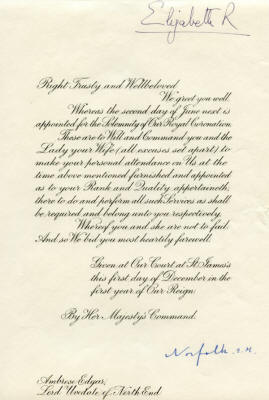 Elizabeth R
Right Trusty and Wellbeloved
We greet you well.
Whereas the second day of June next is
appointed for the Solemnity of Our Royal Coronation
These are to Will and Command you and the
Lady your Wife (all excuses set apart) to
make your personal attendance on Us at the
time above mentioned furnished and appointed
as to your Rank and Quality appertaineth,
there to do and perform all such Services as shall
be required and belong unto you respectively.
Whereof you and she are not to fail.
And so We bid you most heartily farewell.
Given at Our Court at St. James's
this first day of December in the
first year of Our Reign.
By Her Majesty's Command.
Norfolk E.M.
Ambrose Edgar,
Lord Uvedale of North End